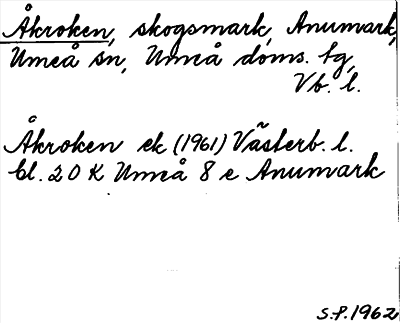 Åkroken, skogsmark, Anumark,
Umeå sn, Umeå doms. tg,
Vb. l.
Åkroken ek (1961) Västerb. l.
bl. 20 K Umeå 8 e Anumark
S.P. 1962